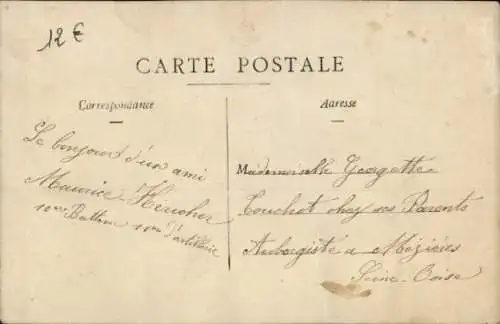 12 €
CARTE POSTALE
Correspondance
Adresse
Le bonjour d'un ami
Maurice Heruher
10me Battrie 11me d'artillerie
Mademoiselle Georgette
Touchot chez ses Parents
Aubergiste a Mézières
Seine-Oise